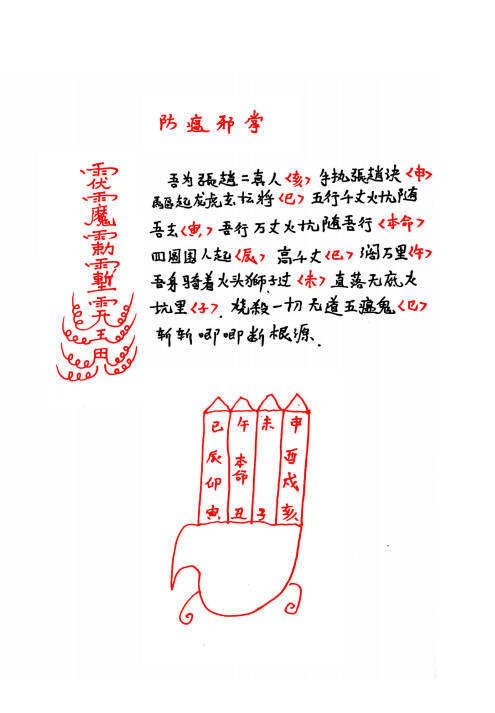 防瘟邪掌
吾为張趙二真人〈亥〉手执張趙诀〈申〉
驅起龙虎玄坛將〈巳〉五行千丈火坑随
吾去〈寅〉吾行万丈火坑随吾行〈本命〉
四圆围人起〈辰〉高千丈〈巳〉阔万里〈午〉
吾身骑着火头狮子过〈未〉直落无底火
坑里〈子〉烧殺一切无道五瘟鬼〈巳〉
斬斬唧唧断根源.
巳 午 未 申
辰 本命 酉
卯 戌
寅 丑 子 亥